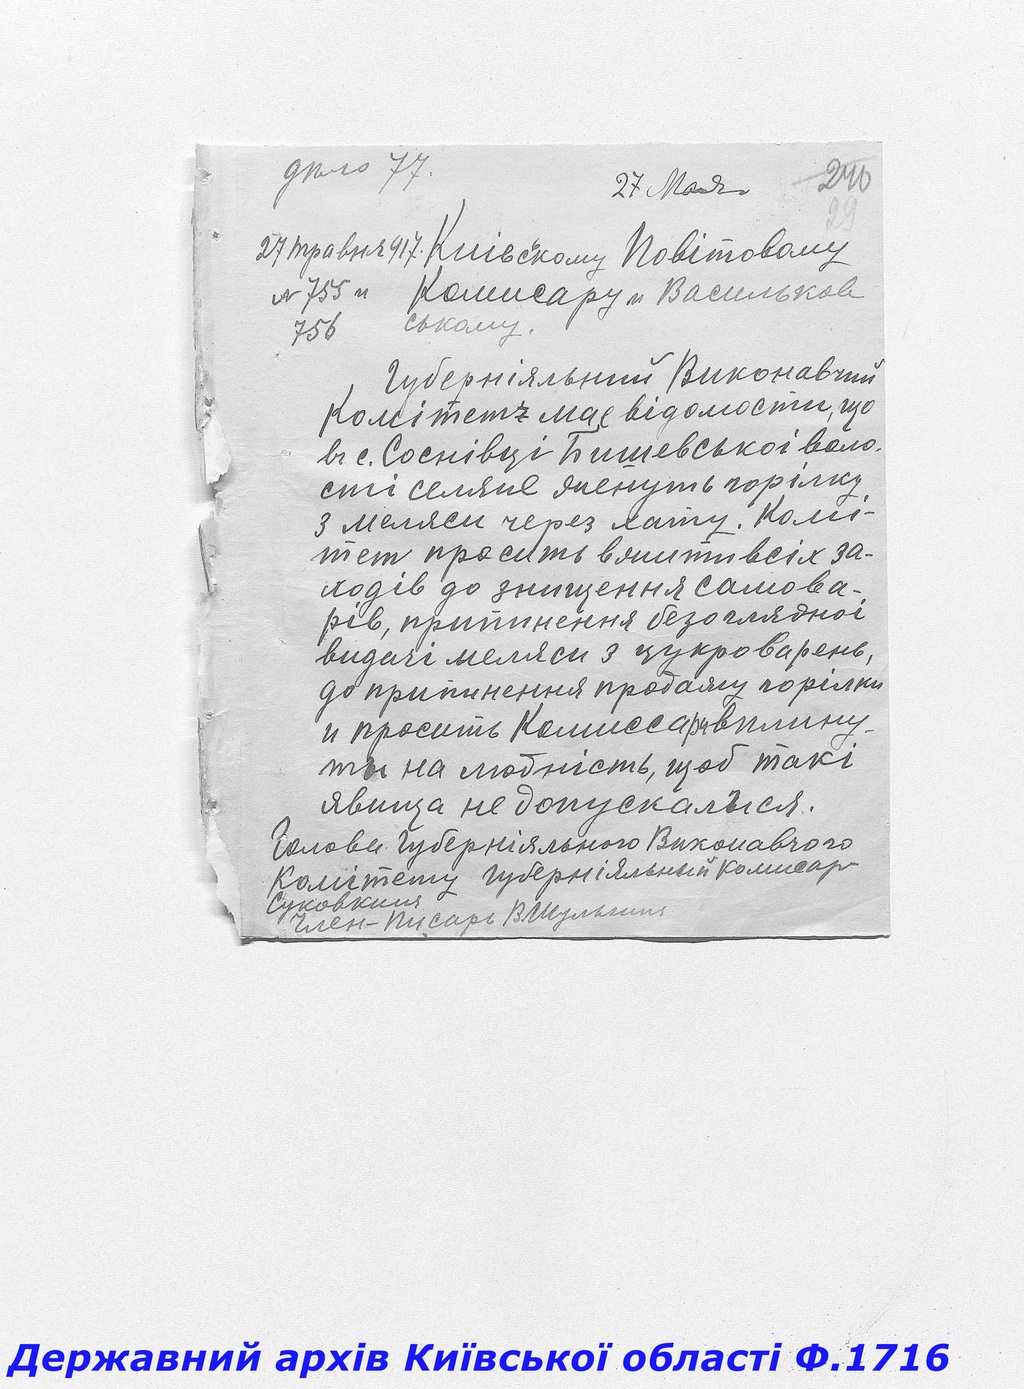 дѣло 77.
27 Мая
240
29
27 травня 917. Киівському Повітовому
№ 755 и Комисару и Васильков
756 ському.
Губерніяльний Виконавчий
Комітетъ має відомости, що
в с. Соснівці Бишевської воло-
сті селяне женуть горілку
з меляси через хату. Комі-
тет просить вжити всіх за-
ходів до знищення самова-
рів, припинення безоглядної
видачі меляси з цукроварень,
до припинення продажу горілки
и просить Комиссара вплину-
ти на людність, щоб такі
явища не допускалыся.
Голова Губерніяльного Виконавчого
Комітету Губерніяльный Комисар
Суковкин
Член-Писарь В Шульгин
Державний архів Київської області Ф.1716